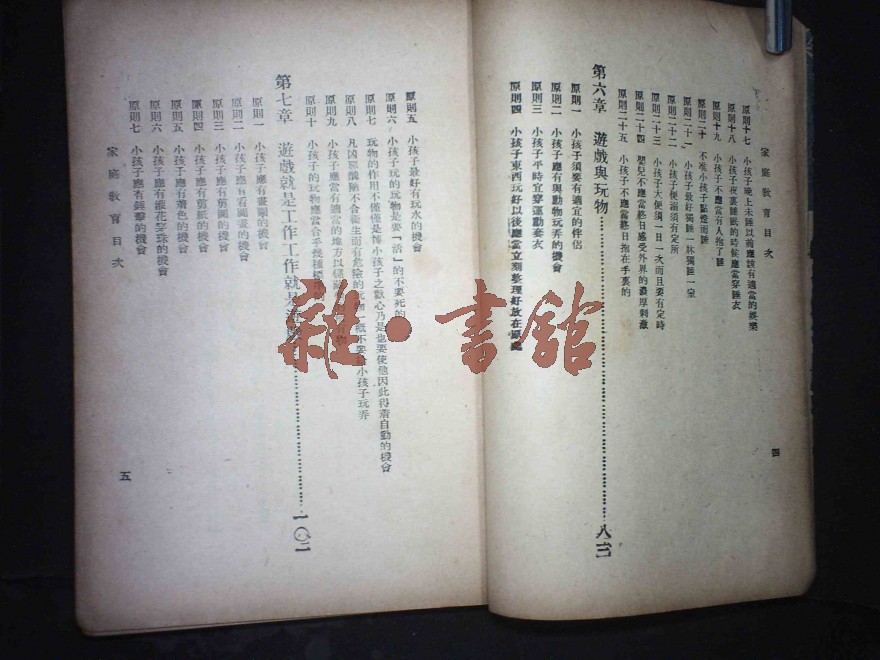 家庭敎育目次
原則十七 小孩子晚上未睡以前應該有適當的娛樂
原則十八 小孩子夜裏睡眠的時候應當穿睡衣
原則十九 小孩子不應當有人抱了睡
原則二十 不准小孩子點燈而睡
原則二十一 小孩子最好獨睡一牀獨睡一室
原則二十二 小孩子便溺須有定所
原則二十三 小孩子大便須一日一次而且要有定時
原則二十四 嬰兒不應當終日感受外界的濃厚刺激
原則二十五 小孩子不應當終日抱在手裏的
第六章 遊戲與玩物
原則一 小孩子須要有適宜的伴侶
原則二 小孩子應有與動物玩弄的機會
原則三 小孩子平時宜穿運動套衣
原則四 小孩子東西玩好以後應當立刻整理好放在原處
四
原則五 小孩子最好有玩水的機會
原則六 小孩子玩的玩物是要「活」的不要死的
原則七 玩物的作用不僅僅是博小孩子之歡心乃是也要使他因此得着自動的機會
原則八 凡凶惡醜陋不合衞生而有危險的玩物一概不要給小孩子玩弄
原則九 小孩子應當有適當的地方以儲藏
原則十 小孩子的玩物應當合乎幾種標準
第七章 遊戲就是工作工作就是遊戲 一〇二
原則一 小孩子應有畫圖的機會
原則二 小孩子應有看圖畫的機會
原則三 小孩子應有剪圖的機會
原則四 小孩子應有剪紙的機會
原則五 小孩子應有着色的機會
原則六 小孩子應有穿珠的機會
原則七 小孩子應有錘擊的機會
家庭敎育目次
五
雜·書館